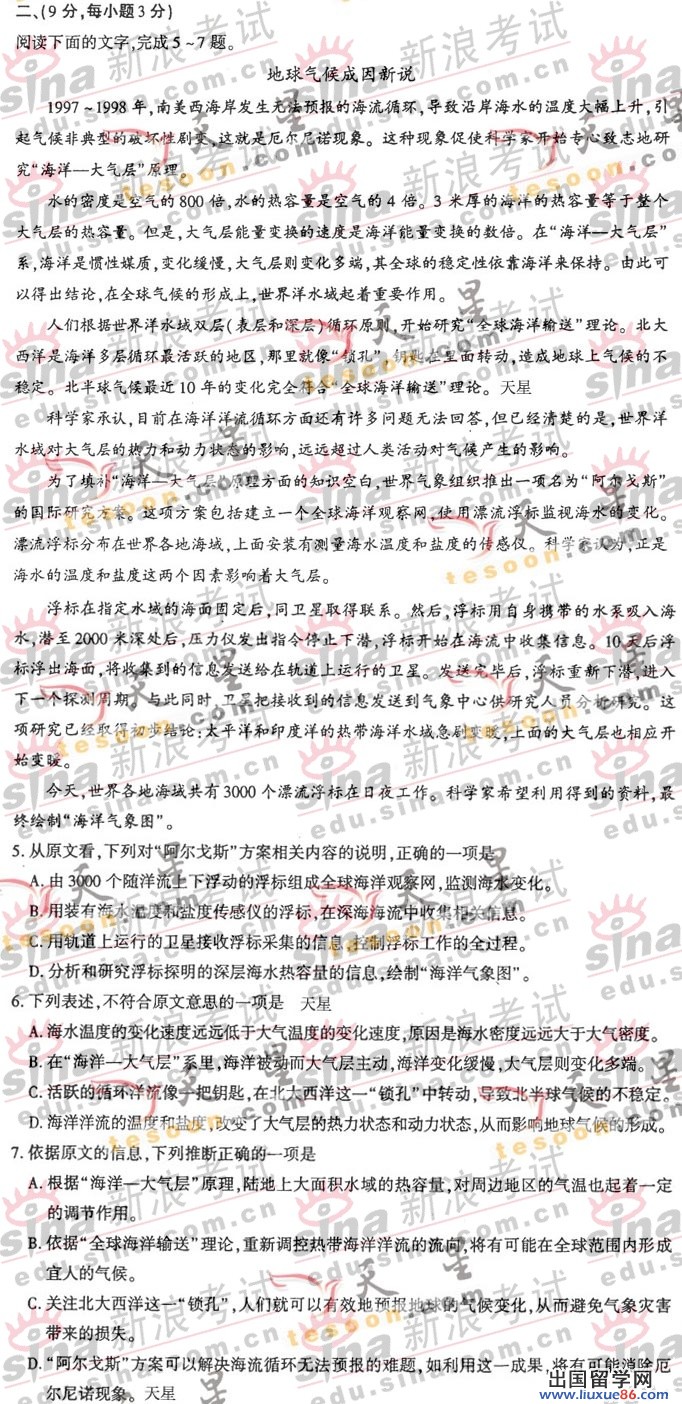 二、(9分,每小题3分)
阅读下面的文字,完成5~7题。
地球气候成因新说
1997~1998年,南美西海岸发生无法预报的海流循环,导致沿岸海水的温度大幅上升,引
起气候非典型的破坏性剧变,这就是厄尔尼诺现象。这种现象促使科学家开始专心致志地研
究“海洋—大气层”原理。
水的密度是空气的800倍,水的热容量是空气的4倍。3米厚的海洋的热容量等于整个
大气层的热容量。但是,大气层能量变换的速度是海洋能量变换的数倍。在“海洋—大气层”
系,海洋是惯性媒质,变化缓慢,大气层则变化多端,其全球的稳定性依靠海洋来保持。由此可
以得出结论,在全球气候的形成上,世界洋水域起着重要作用。
人们根据世界洋水域双层(表层和深层)循环原则,开始研究“全球海洋输送”理论。北大
西洋是海洋多层循环最活跃的地区,那里就像“锁孔”,钥匙在里面转动,造成地球上气候的不
稳定。北半球气候最近10年的变化完全符合“全球海洋输送”理论。天星
科学家承认,目前在海洋洋流循环方面还有许多问题无法回答,但已经清楚的是,世界洋
水域对大气层的热力和动力状态的影响,远远超过人类活动对气候产生的影响。
为了填补“海洋—大气层”原理方面的知识空白,世界气象组织推出一项名为“阿尔戈斯”
的国际研究方案。这项方案包括建立一个全球海洋观察网,使用漂流浮标监视海水的变化。
漂流浮标分布在世界各地海域,上面安装有测量海水温度和盐度的传感仪。科学家认为,正是
海水的温度和盐度这两个因素影响着大气层。
浮标在指定水域的海面固定后,同卫星取得联系。然后,浮标用自身携带的水泵吸入海
水,潜至2000米深处后,压力仪发出指令停止下潜,浮标开始在海流中收集信息。10天后浮
标浮出海面,将收集到的信息发送给在轨道上运行的卫星。发送完毕后,浮标重新下潜,进入
下一个探测周期。与此同时,卫星把接收到的信息发送到气象中心供研究人员分析研究。这
项研究已经取得初步结论:太平洋和印度洋的热带海洋水域急剧变暖,上面的大气层也相应开
始变暖。
今天,世界各地海域共有3000个漂流浮标在日夜工作。科学家希望利用得到的资料,最
终绘制“海洋气象图”。
5. 从原文看,下列对“阿尔戈斯”方案相关内容的说明,正确的一项是
A. 由3000个随洋流上下浮动的浮标组成全球海洋观察网,监测海水变化。
B. 用装有海水温度和盐度传感仪的浮标,在深海海流中收集相关信息。
C. 用轨道上运行的卫星接收浮标采集的信息,控制浮标工作的全过程。
D. 分析和研究浮标探明的深层海水热容量的信息,绘制“海洋气象图”。
6. 下列表述,不符合原文意思的一项是 天星
A. 海水温度的变化速度远远低于大气温度的变化速度,原因是海水密度远远大于大气密度。
B. 在“海洋—大气层”系里,海洋被动而大气层主动,海洋变化缓慢,大气层则变化多端。
C. 活跃的循环洋流像一把钥匙,在北大西洋这一“锁孔”中转动,导致北半球气候的不稳定。
D. 海洋洋流的温度和盐度,改变了大气层的热力状态和动力状态,从而影响地球气候的形成。
7. 依据原文的信息,下列推断正确的一项是
A. 根据“海洋—大气层”原理,陆地上大面积水域的热容量,对周边地区的气温也起着一定
的调节作用。
B. 依据“全球海洋输送”理论,重新调控热带海洋洋流的流向,将有可能在全球范围内形成
宜人的气候。
C. 关注北大西洋这一“锁孔”,人们就可以有效地预报地球的气候变化,从而避免气象灾害
带来的损失。
D. “阿尔戈斯”方案可以解决海流循环无法预报的难题,如利用这一成果,将有可能消除厄
尔尼诺现象。天星
出国留学网
www.liuxue86.com